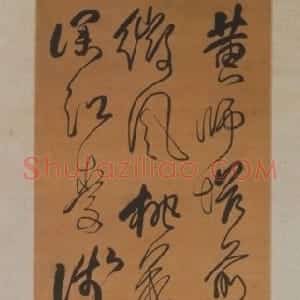 黄师塔前
微风桃花
深红爱浅
Shufaziliao.COM